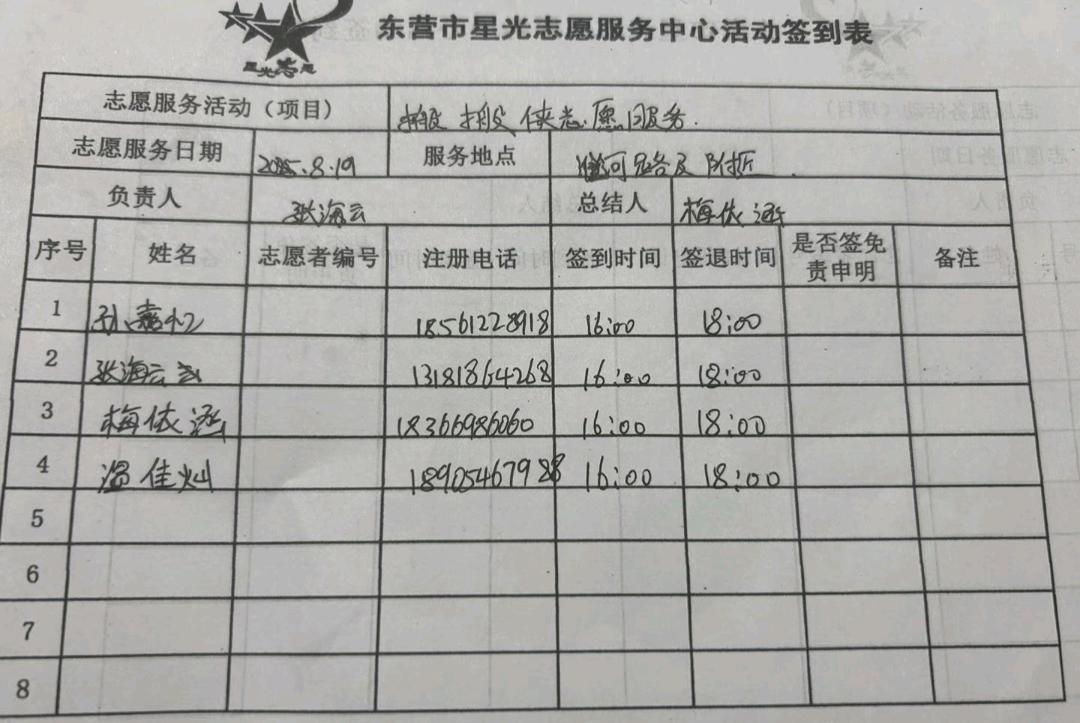 星光志愿
东营市星光志愿服务中心活动签到表
志愿服务活动（项目） 搬搬侠志愿服务.
志愿服务日期 2025.8.19 服务地点 河路及附近.
负责人 张海云 总结人 梅依涵
序号 姓名 志愿者编号 注册电话 签到时间 签退时间 是否签免责申明 备注
1 孙嘉忆 18561228918 16:00 18:00
2 张海云 13181864268 16:00 18:00
3 梅依涵 18366986060 16:00 18:00
4 温佳灿 18905467988 16:00 18:00
5
6
7
8